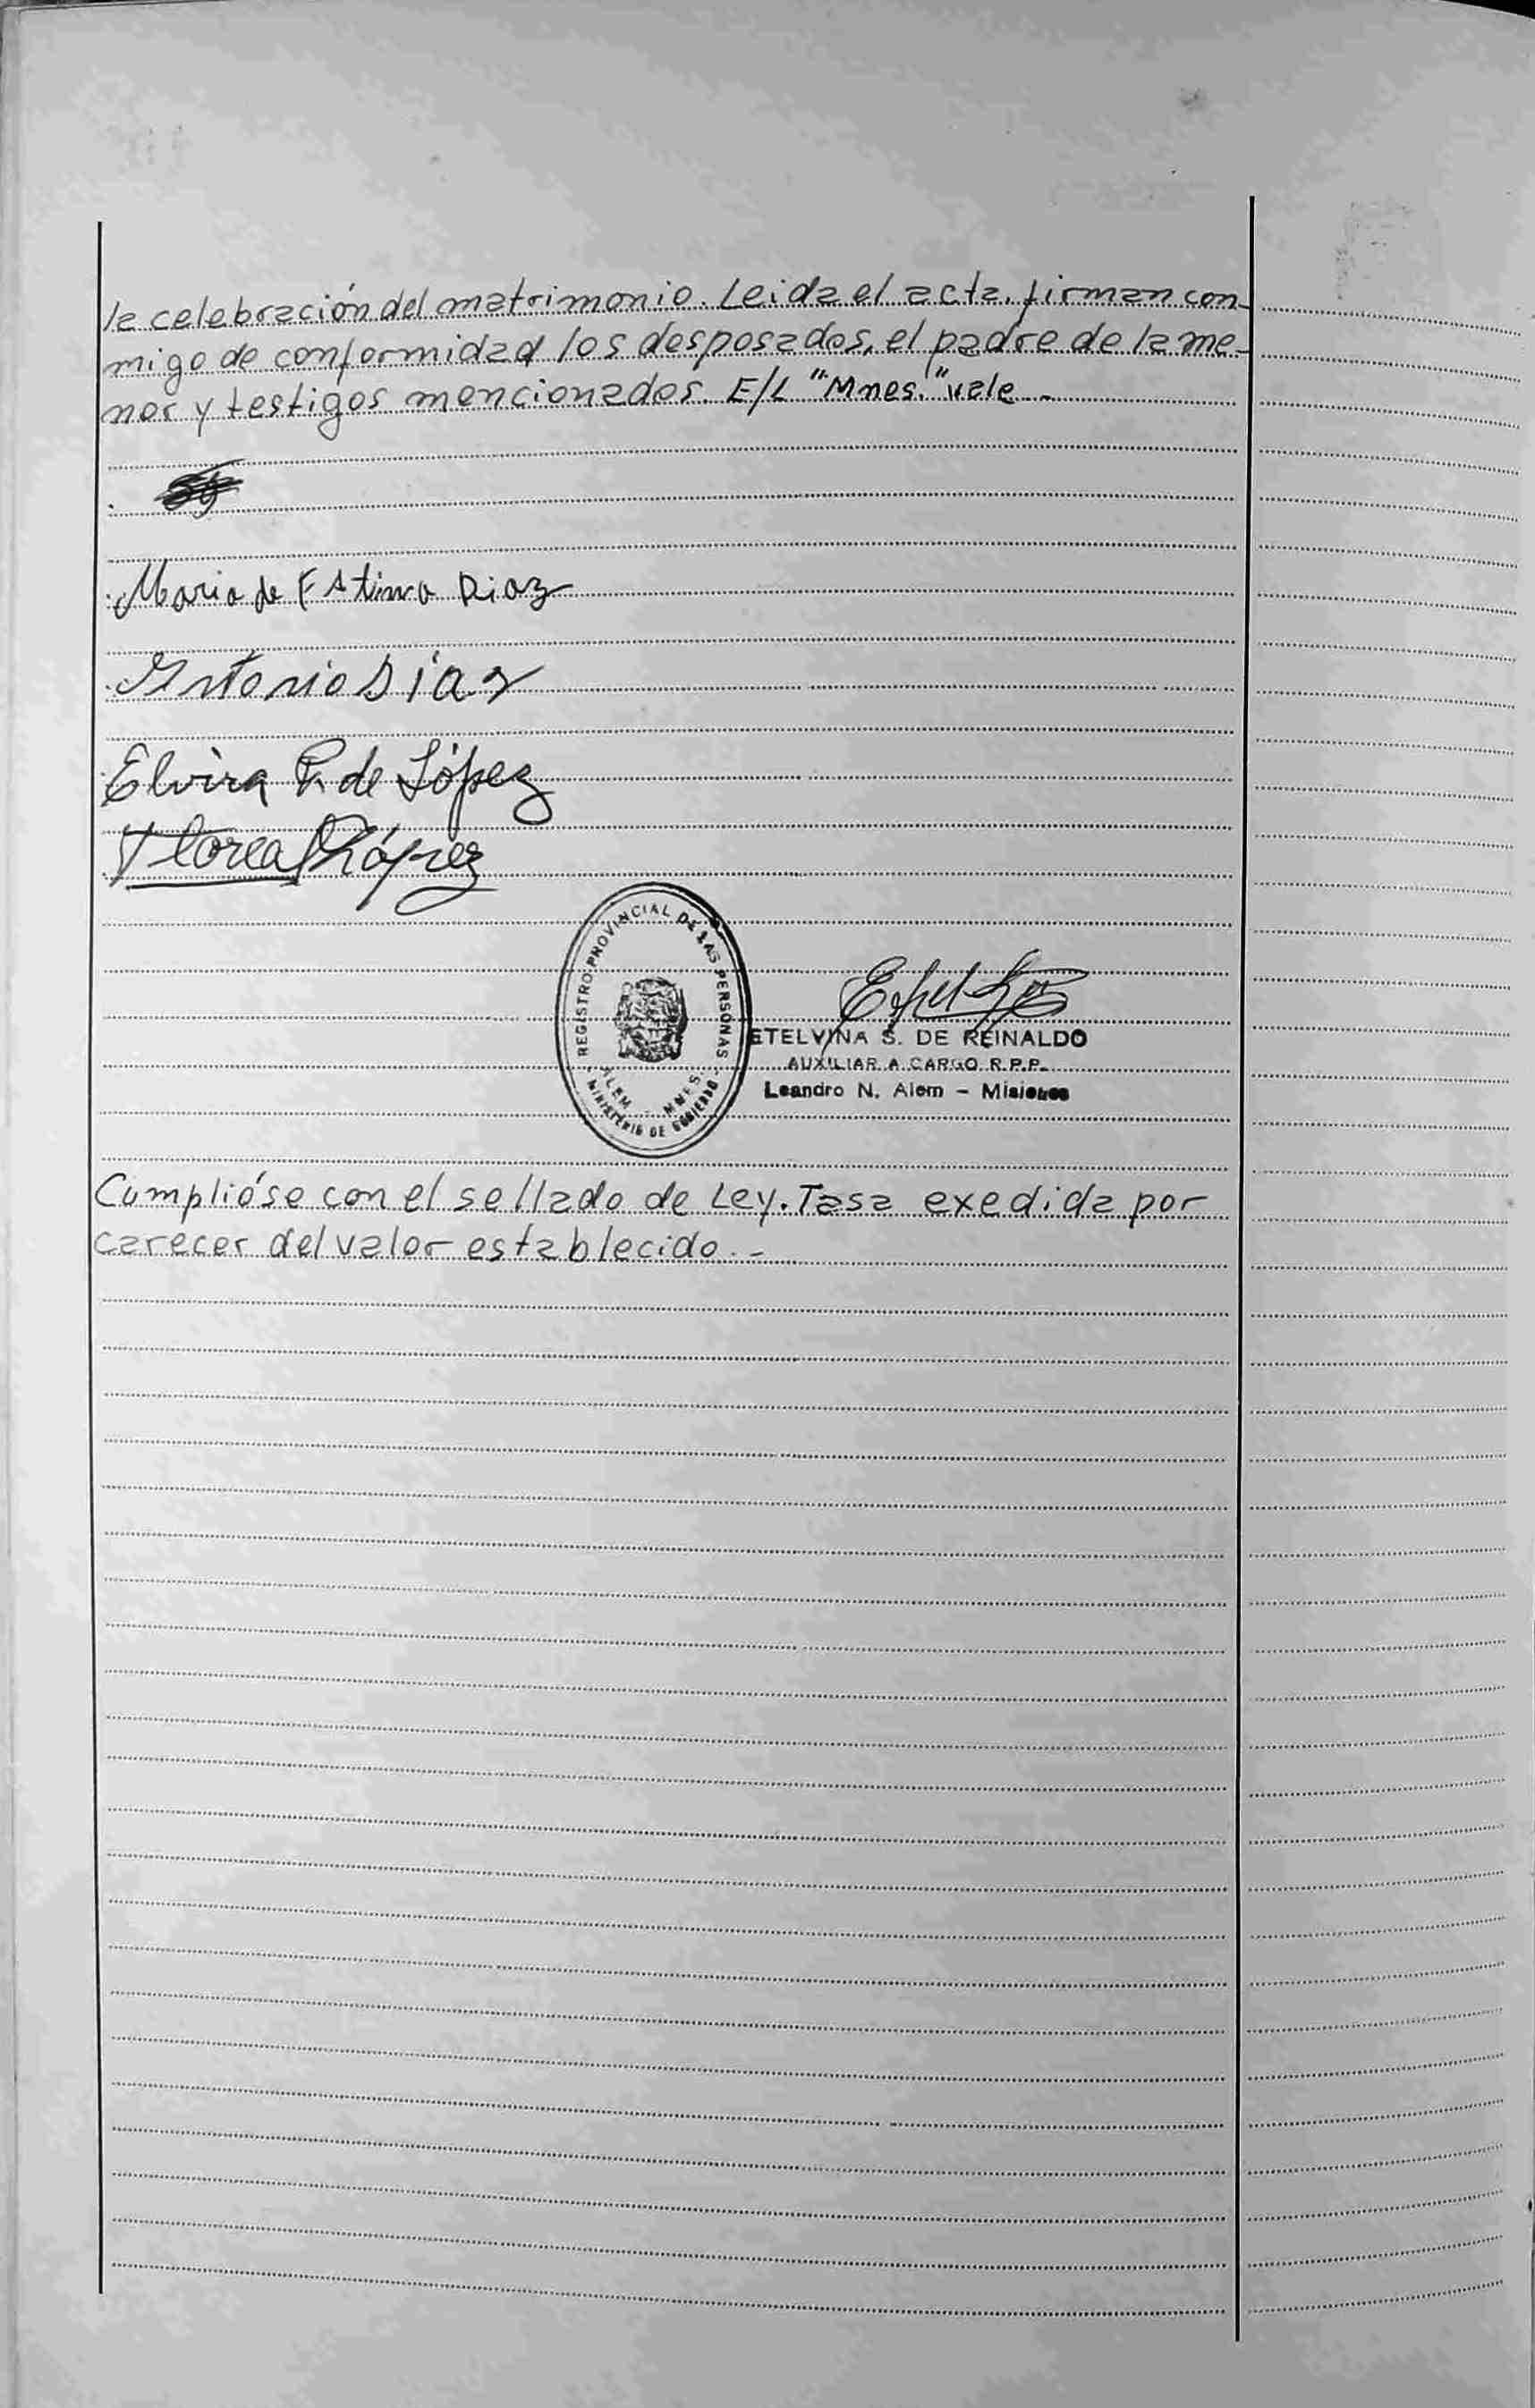 la celebración del matrimonio. Leida el acta, firman con-
migo de conformidad los desposados, el padre de la me-
nor y testigos mencionados. E/L "Mnes." vale.-
Maria de FAtima Diaz
Antonio Diaz
Elvira P. de López
Floreal López
REGISTRO PROVINCIAL DE LAS PERSONAS
ALEM - MNES.
MINISTERIO DE GOBIERNO
ETELVINA S. DE REINALDO
AUXILIAR A CARGO R.P.P.
Leandro N. Alem - Misiones
Cumplióse con el sellado de Ley. Tasa exedida por
carecer del valor establecido.-